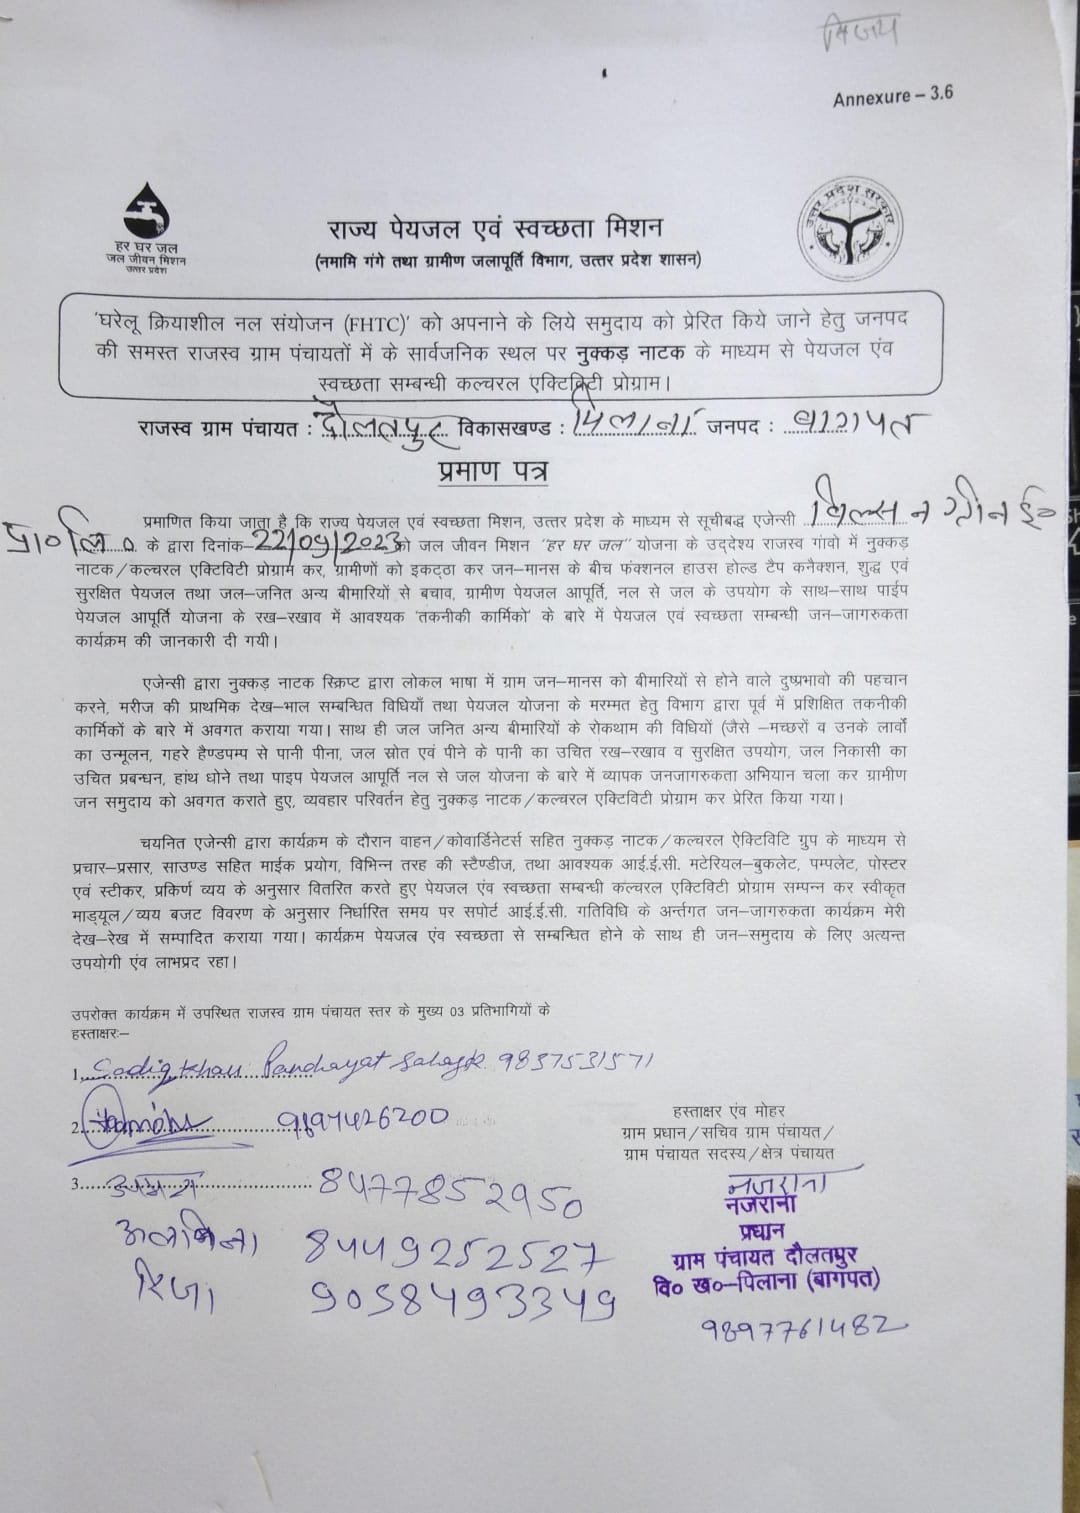 विजय
Annexure – 3.6
हर घर जल
जल जीवन मिशन
उत्तर प्रदेश
राज्य पेयजल एवं स्वच्छता मिशन
(नमामि गंगे तथा ग्रामीण जलापूर्ति विभाग, उत्तर प्रदेश शासन)
उत्तर प्रदेश सरकार
'घरेलू क्रियाशील नल संयोजन (FHTC)' को अपनाने के लिये समुदाय को प्रेरित किये जाने हेतु जनपद
की समस्त राजस्व ग्राम पंचायतों में के सार्वजनिक स्थल पर नुक्कड़ नाटक के माध्यम से पेयजल एंव
स्वच्छता सम्बन्धी कल्चरल एक्टिविटी प्रोग्राम।
राजस्व ग्राम पंचायत : दौलतपुर विकासखण्ड : पिलाना जनपद : बागपत
प्रमाण पत्र
प्रमाणित किया जाता है कि राज्य पेयजल एवं स्वच्छता मिशन, उत्तर प्रदेश के माध्यम से सूचीबद्ध एजेन्सी विल्सन ग्रीन ई०
प्रा० लि० के द्वारा दिनांक-22/09/2023 को जल जीवन मिशन "हर घर जल" योजना के उद्देश्य राजस्व गांवो में नुक्कड़
नाटक/कल्चरल एक्टिविटी प्रोग्राम कर, ग्रामीणों को इकट्ठा कर जन–मानस के बीच फंक्शनल हाउस होल्ड टैप कनैक्शन, शुद्ध एवं
सुरक्षित पेयजल तथा जल–जनित अन्य बीमारियों से बचाव, ग्रामीण पेयजल आपूर्ति, नल से जल के उपयोग के साथ–साथ पाईप
पेयजल आपूर्ति योजना के रख–रखाव में आवश्यक 'तकनीकी कार्मिको' के बारे में पेयजल एवं स्वच्छता सम्बन्धी जन–जागरुकता
कार्यक्रम की जानकारी दी गयी।
एजेन्सी द्वारा नुक्कड़ नाटक स्क्रिप्ट द्वारा लोकल भाषा में ग्राम जन–मानस को बीमारियों से होने वाले दुष्प्रभावो की पहचान
करने, मरीज की प्राथमिक देख–भाल सम्बन्धित विधियाँ तथा पेयजल योजना के मरम्मत हेतु विभाग द्वारा पूर्व में प्रशिक्षित तकनीकी
कार्मिकों के बारे में अवगत कराया गया। साथ ही जल जनित अन्य बीमारियों के रोकथाम की विधियों (जैसे –मच्छरों व उनके लार्वो
का उन्मूलन, गहरे हैण्डपम्प से पानी पीना, जल स्रोत एवं पीने के पानी का उचित रख–रखाव व सुरक्षित उपयोग, जल निकासी का
उचित प्रबन्धन, हांथ धोने तथा पाइप पेयजल आपूर्ति नल से जल योजना के बारे में व्यापक जनजागरुकता अभियान चला कर ग्रामीण
जन समुदाय को अवगत कराते हुए, व्यवहार परिवर्तन हेतु नुक्कड़ नाटक/कल्चरल एक्टिविटी प्रोग्राम कर प्रेरित किया गया।
चयनित एजेन्सी द्वारा कार्यक्रम के दौरान वाहन/कोवार्डिनेटर्स सहित नुक्कड़ नाटक/कल्चरल ऐक्टिविटि ग्रुप के माध्यम से
प्रचार–प्रसार, साउण्ड सहित माईक प्रयोग, विभिन्न तरह की स्टैण्डीज, तथा आवश्यक आई.ई.सी. मटेरियल–बुकलेट, पम्पलेट, पोस्टर
एवं स्टीकर, प्रकिर्ण व्यय के अनुसार वितरित करते हुए पेयजल एंव स्वच्छता सम्बन्धी कल्चरल एक्टिविटी प्रोग्राम सम्पन्न कर स्वीकृत
माड्यूल/व्यय बजट विवरण के अनुसार निर्धारित समय पर सपोर्ट आई.ई.सी. गतिविधि के अर्न्तगत जन–जागरुकता कार्यक्रम मेरी
देख–रेख में सम्पादित कराया गया। कार्यक्रम पेयजल एंव स्वच्छता से सम्बन्धित होने के साथ ही जन–समुदाय के लिए अत्यन्त
उपयोगी एंव लाभप्रद रहा।
उपरोक्त कार्यक्रम में उपस्थित राजस्व ग्राम पंचायत स्तर के मुख्य 03 प्रतिभागियों के
हस्ताक्षरः–
1. Sadiq Khan Panchayat Sahayk 9837531571
2. 9897426200
3. 8477852950
अलविना 8449252527
रिजा 9058493349
हस्ताक्षर एंव मोहर
ग्राम प्रधान/सचिव ग्राम पंचायत/
ग्राम पंचायत सदस्य/क्षेत्र पंचायत
नजराना
नजराना
प्रधान
ग्राम पंचायत दौलतपुर
वि० ख०–पिलाना (बागपत)
9897761482